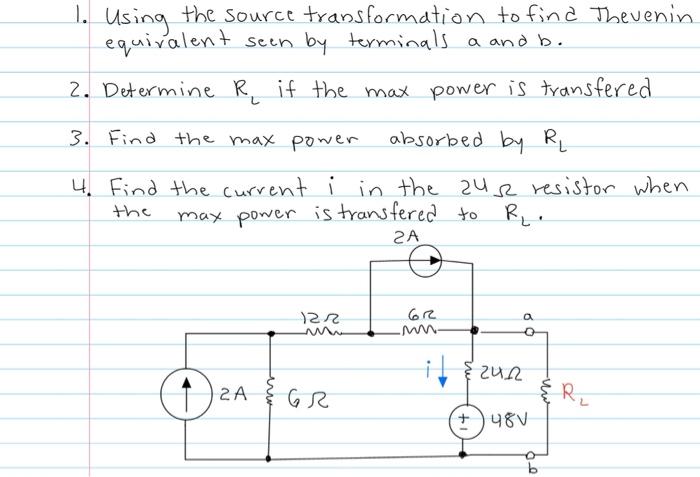 1. Using the source transformation to find Thevenin
equivalent seen by terminals a and b.
2. Determine R_L if the max power is transfered
3. Find the max power absorbed by R_L
4. Find the current i in the 24 Ω resistor when
the max power is transfered to R_L.
2A
12Ω
6Ω
a
i
24Ω
R_L
2A
6Ω
+
-
48V
b